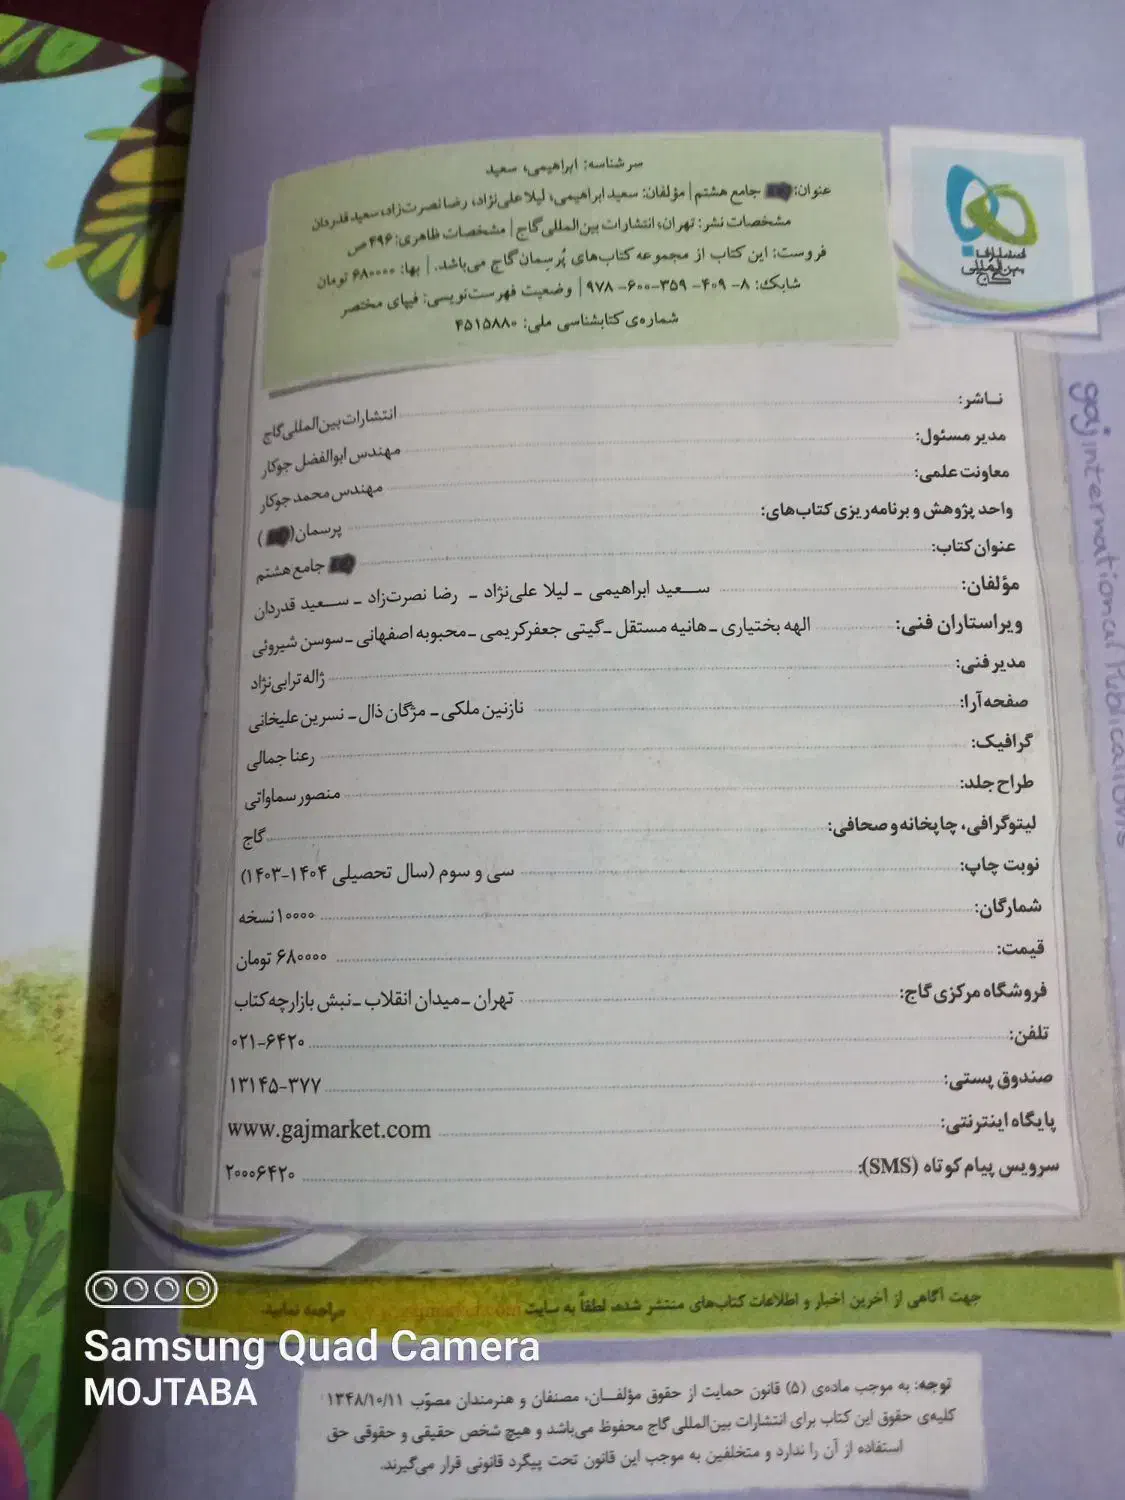 سرشناسه: ابراهیمی، سعید
عنوان: جامع هشتم | مؤلفان: سعید ابراهیمی، لیلا علی‌نژاد، رضا نصرت‌زاد، سعید قدردان
مشخصات نشر: تهران، انتشارات بین‌المللی گاج | مشخصات ظاهری: ۴۹۶ ص
فروست: این کتاب از مجموعه کتاب‌های پُرسِمان گاج می‌باشد. | بها: ۶۸۰۰۰۰ تومان
شابک: ۸-۴۰۹-۳۵۹-۶۰۰-۹۷۸ | وضعیت فهرست‌نویسی: فیپای مختصر
شماره‌ی کتابشناسی ملی: ۴۵۱۵۸۸۰
انتشارات بین‌المللی گاج
ناشر: انتشارات بین‌المللی گاج
مدیر مسئول: مهندس ابوالفضل جوکار
معاونت علمی: مهندس محمد جوکار
واحد پژوهش و برنامه‌ریزی کتاب‌های: پرسمان ( )
عنوان کتاب: جامع هشتم
مؤلفان: سعید ابراهیمی ـ لیلا علی‌نژاد ـ رضا نصرت‌زاد ـ سعید قدردان
ویراستاران فنی: الهه بختیاری ـ هانیه مستقل ـ گیتی جعفرکریمی ـ محبوبه اصفهانی ـ سوسن شیروئی
مدیر فنی: ژاله ترابی‌نژاد
صفحه‌آرا: نازنین ملکی ـ مژگان ذال ـ نسرین علیخانی
گرافیک: رعنا جمالی
طراح جلد: منصور سماواتی
لیتوگرافی، چاپخانه و صحافی: گاج
نوبت چاپ: سی و سوم (سال تحصیلی ۱۴۰۴-۱۴۰۳)
شمارگان: ۱۰۰۰۰ نسخه
قیمت: ۶۸۰۰۰۰ تومان
فروشگاه مرکزی گاج: تهران ـ میدان انقلاب ـ نبش بازارچه کتاب
تلفن: ۰۲۱-۶۴۲۰
صندوق پستی: ۱۳۱۴۵-۳۷۷
پایگاه اینترنتی: www.gajmarket.com
سرویس پیام کوتاه (SMS): ۲۰۰۰۶۴۲۰
gaj international Publications
جهت آگاهی از آخرین اخبار و اطلاعات کتاب‌های منتشر شده، لطفاً به سایت مراجعه نمایید.
توجه: به موجب ماده‌ی (۵) قانون حمایت از حقوق مؤلفان، مصنفان و هنرمندان مصوّب ۱۳۴۸/۱۰/۱۱
کلیه‌ی حقوق این کتاب برای انتشارات بین‌المللی گاج محفوظ می‌باشد و هیچ شخص حقیقی و حقوقی حق
استفاده از آن را ندارد و متخلفین به موجب این قانون تحت پیگرد قانونی قرار می‌گیرند.
Samsung Quad Camera
MOJTABA